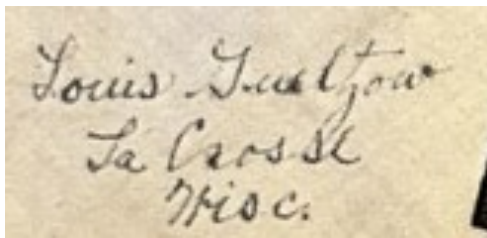 Louis Gueltzow
La Crosse
Wisc.